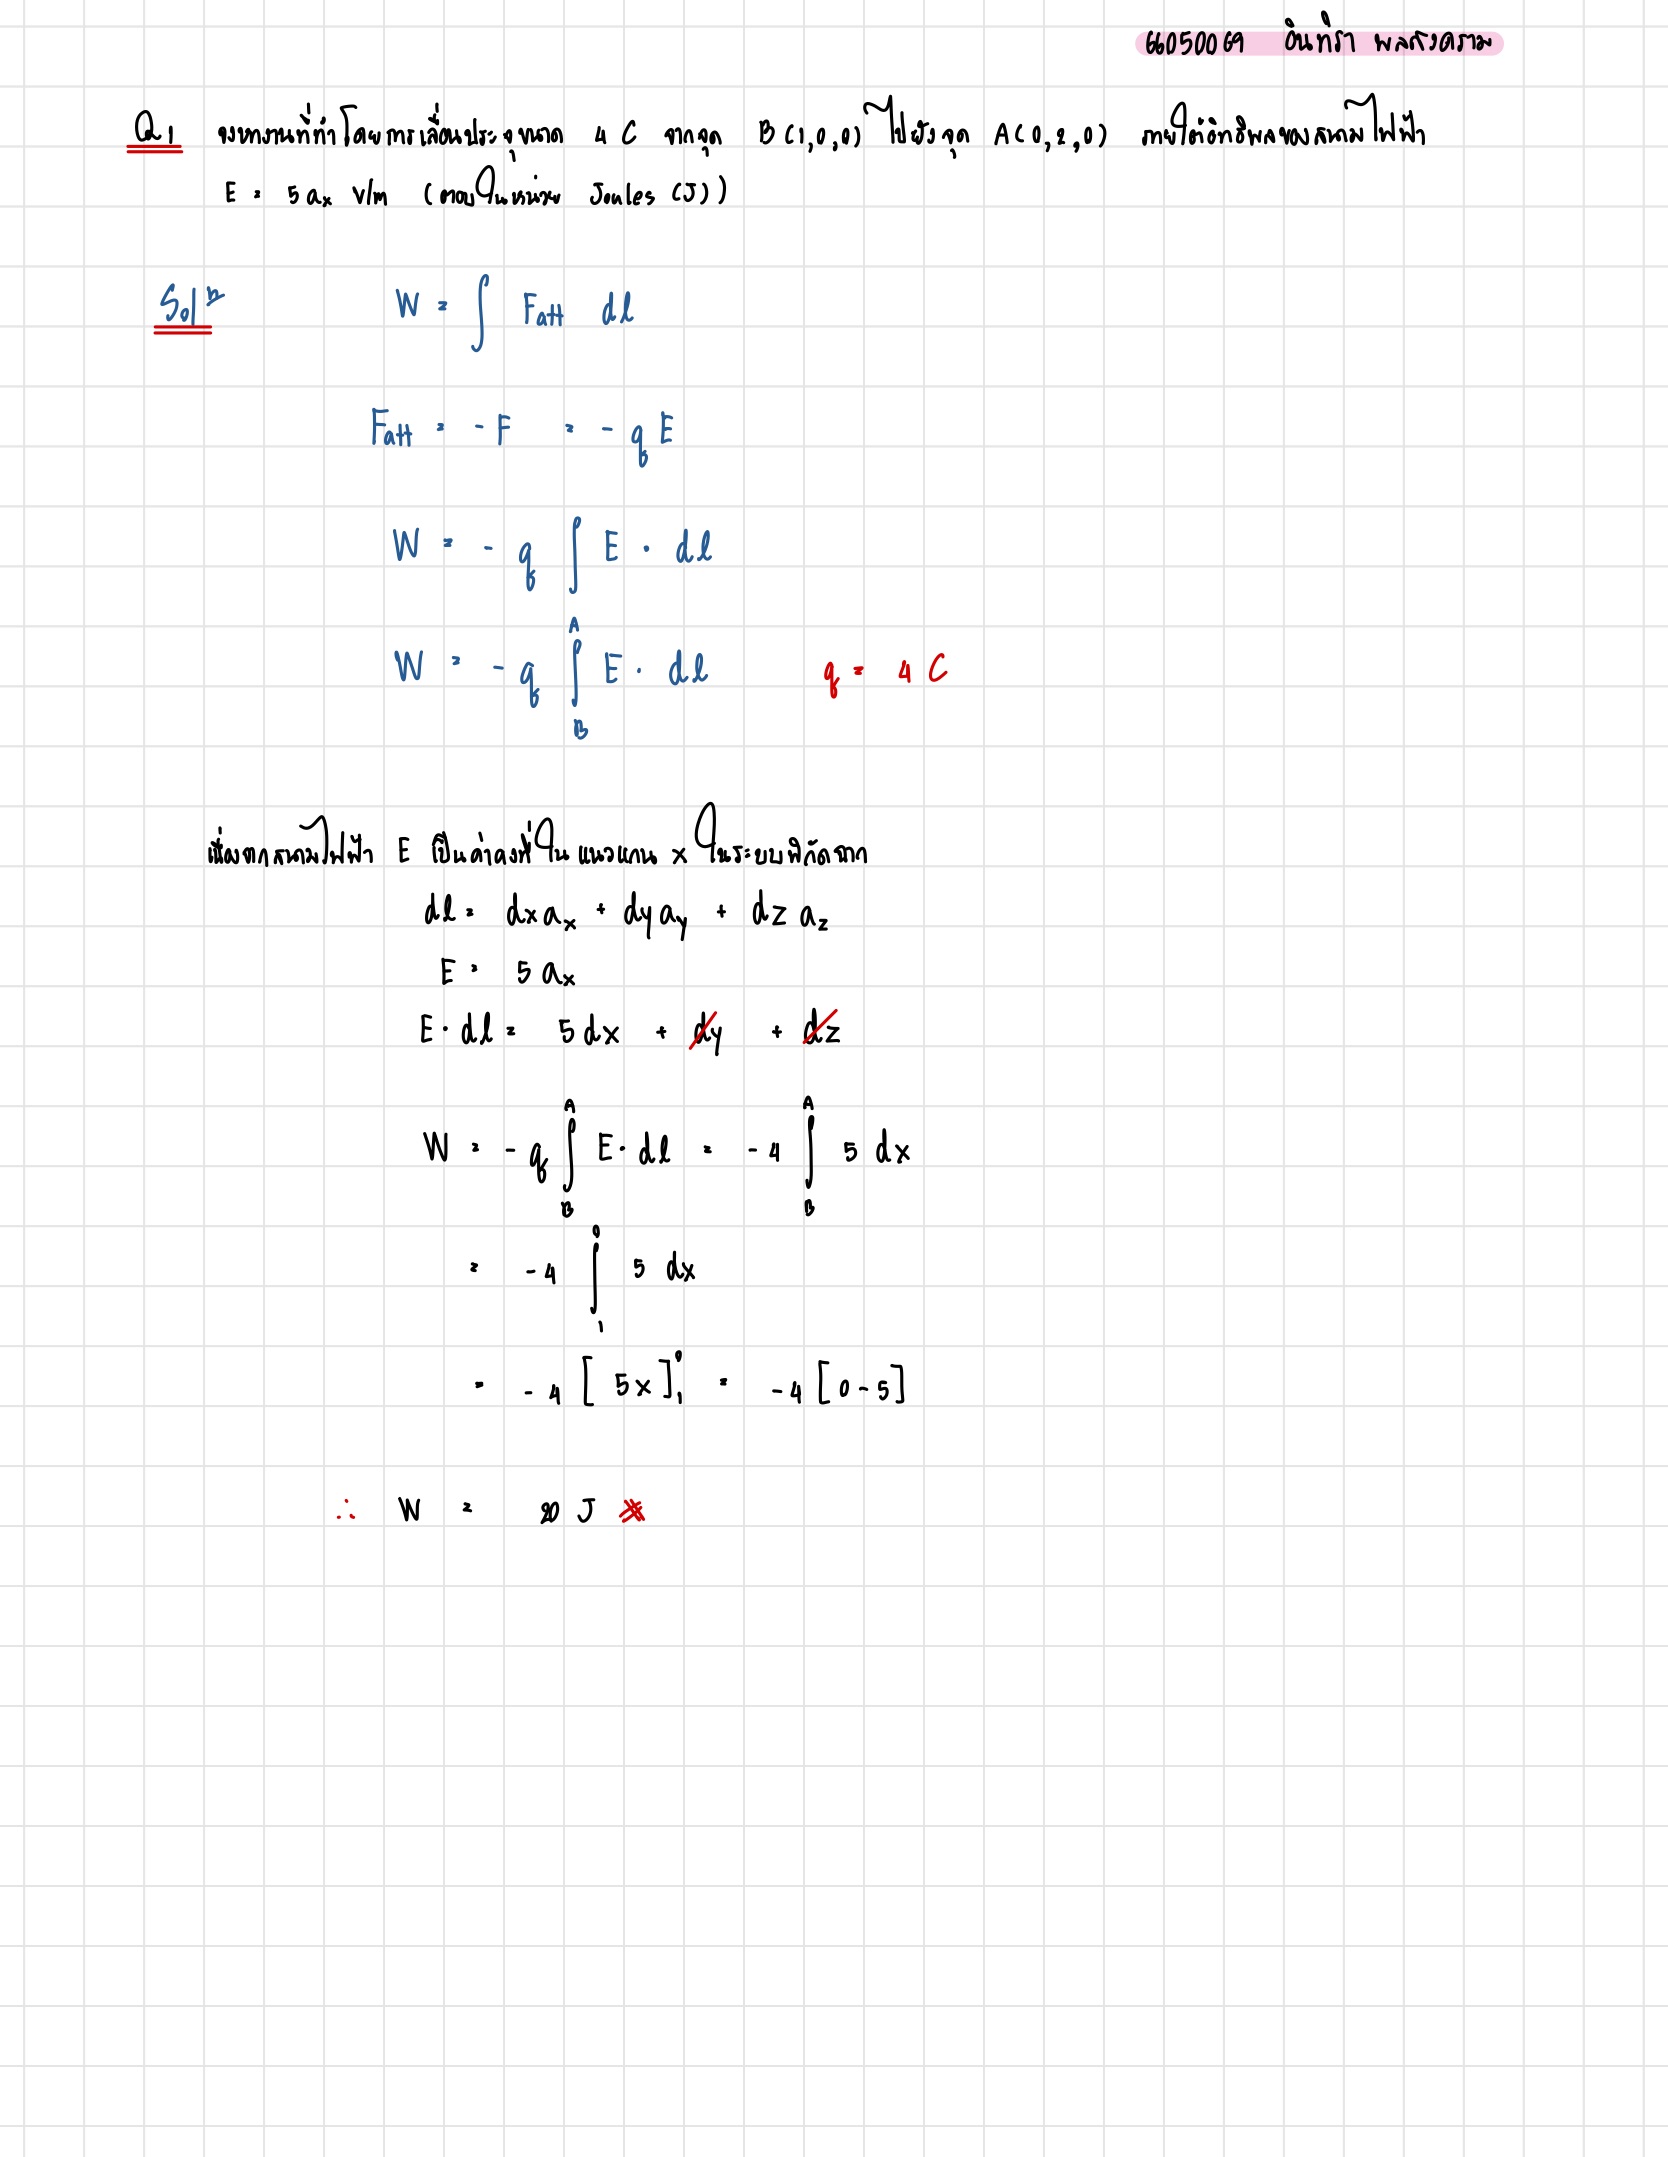 66050069 อินทิรา พลสงคราม
Q1 จงหางานที่ทำโดยการเลื่อนประจุขนาด 4 C จากจุด B(1,0,0) ไปยังจุด A(0,2,0) ภายใต้อิทธิพลของสนามไฟฟ้า
E = 5 aₓ V/m (ตอบในหน่วย Joules (J))
Solⁿ W = ∫ F_att dl
F_att = -F = -qE
W = -q ∫ E · dl
W = -q ∫_B^A E · dl q = 4 C
เนื่องจากสนามไฟฟ้า E เป็นค่าคงที่ในแนวแกน x ในระบบพิกัดฉาก
dl = dx a_x + dy a_y + dz a_z
E = 5 a_x
E · dl = 5 dx + dy + dz
W = -q ∫_B^A E · dl = -4 ∫_B^A 5 dx
= -4 ∫_1^0 5 dx
= -4 [5x]_1^0 = -4 [0-5]
∴ W = 20 J